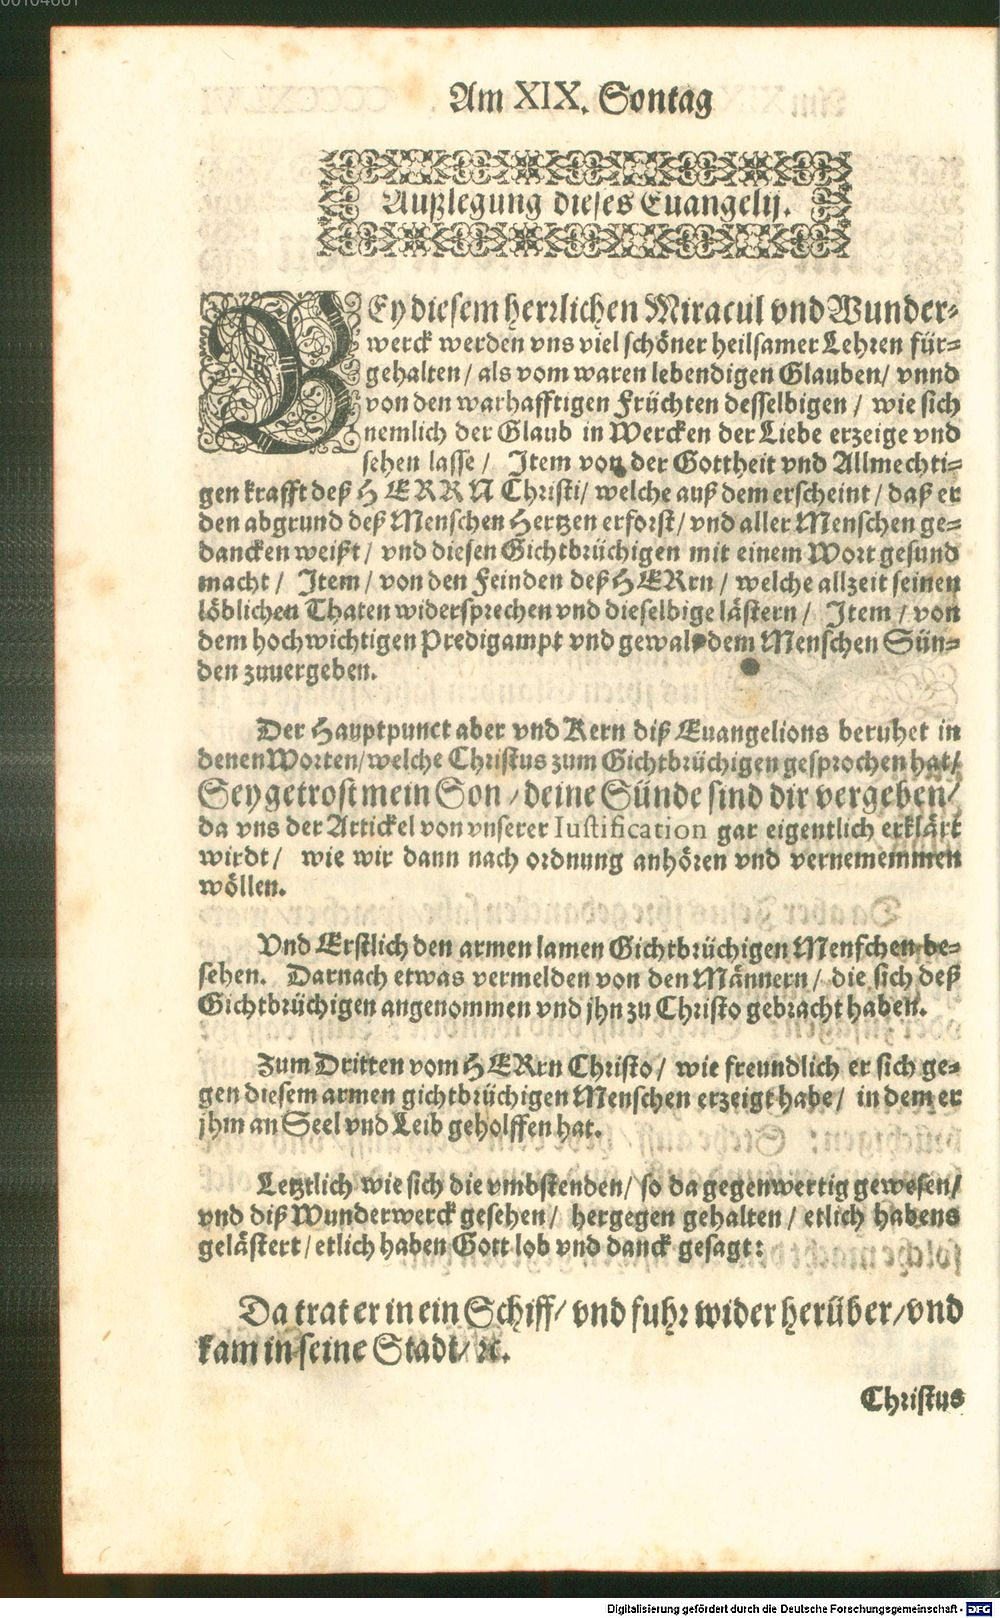 00104661
Am XIX. Sontag
Außlegung dieses Euangelij.
BEy diesem herrlichen Miracul vnd Wunder-
werck werden vns viel schöner heilsamer Lehren für-
gehalten/ als vom waren lebendigen Glauben/ vnnd
von den warhafftigen Früchten desselbigen/ wie sich
nemlich der Glaub in Wercken der Liebe erzeige vnd
sehen lasse/ Item von der Gottheit vnd Allmechti-
gen krafft deß HERRN Christi/ welche auß dem erscheint/ daß er
den abgrund deß Menschen Hertzen erforst/ vnd aller Menschen ge-
dancken weißt/ vnd diesen Gichtbrüchigen mit einem Wort gesund
macht/ Item/ von den Feinden deß HERrn/ welche allzeit seinen
löblichen Thaten widersprechen vnd dieselbige lästern/ Item/ von
dem hochwichtigen Predigampt vnd gewalt dem Menschen Sün-
den zuuergeben.
Der Hauptpunct aber vnd Kern diß Euangelions beruhet in
denen Worten/ welche Christus zum Gichtbrüchigen gesprochen hat/
Sey getrost mein Son/ deine Sünde sind dir vergeben/
da vns der Artickel von vnserer Iustification gar eigentlich erklärt
wirdt/ wie wir dann nach ordnung anhören vnd vernememmen
wöllen.
Vnd Erstlich den armen lamen Gichtbrüchigen Menschen be-
sehen. Darnach etwas vermelden von den Männern/ die sich deß
Gichtbrüchigen angenommen vnd jhn zu Christo gebracht haben.
Zum Dritten vom HERrn Christo/ wie freundlich er sich ge-
gen diesem armen gichtbrüchigen Menschen erzeigt habe/ in dem er
jhm an Seel vnd Leib geholffen hat.
Letztlich wie sich die vmbstenden/ so da gegenwertig gewesen/
vnd diß Wunderwerck gesehen/ hergegen gehalten/ etlich habens
gelästert/ etlich haben Gott lob vnd danck gesagt:
Da trat er in ein Schiff/ vnd fuhr wider herüber/ vnd
kam in seine Stadt/ ꝛc.
Christus
Digitalisierung gefördert durch die Deutsche Forschungsgemeinschaft - DFG